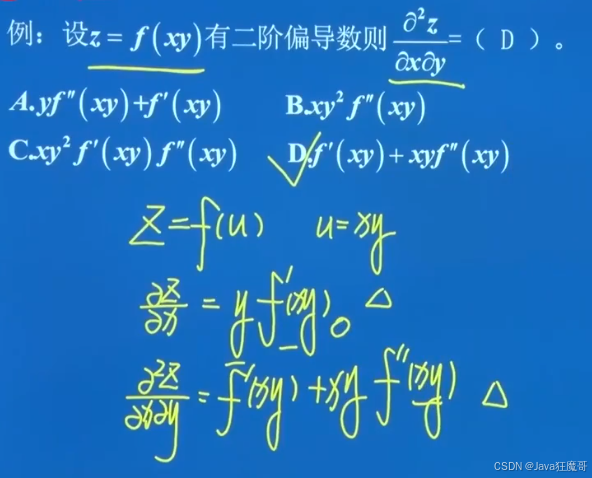 例：设z = f(xy)有二阶偏导数则 ∂²z/∂x∂y =（ D ）。
A.yf″(xy)+f′(xy)  B.xy²f″(xy)
C.xy²f′(xy)f″(xy)  D.f′(xy)+xyf″(xy)
Z=f(u)  u=xy
∂z/∂x = yf′(xy)。 △
∂²z/∂x∂y = f′(xy)+xyf″(xy) △
CSDN @Java狂魔哥